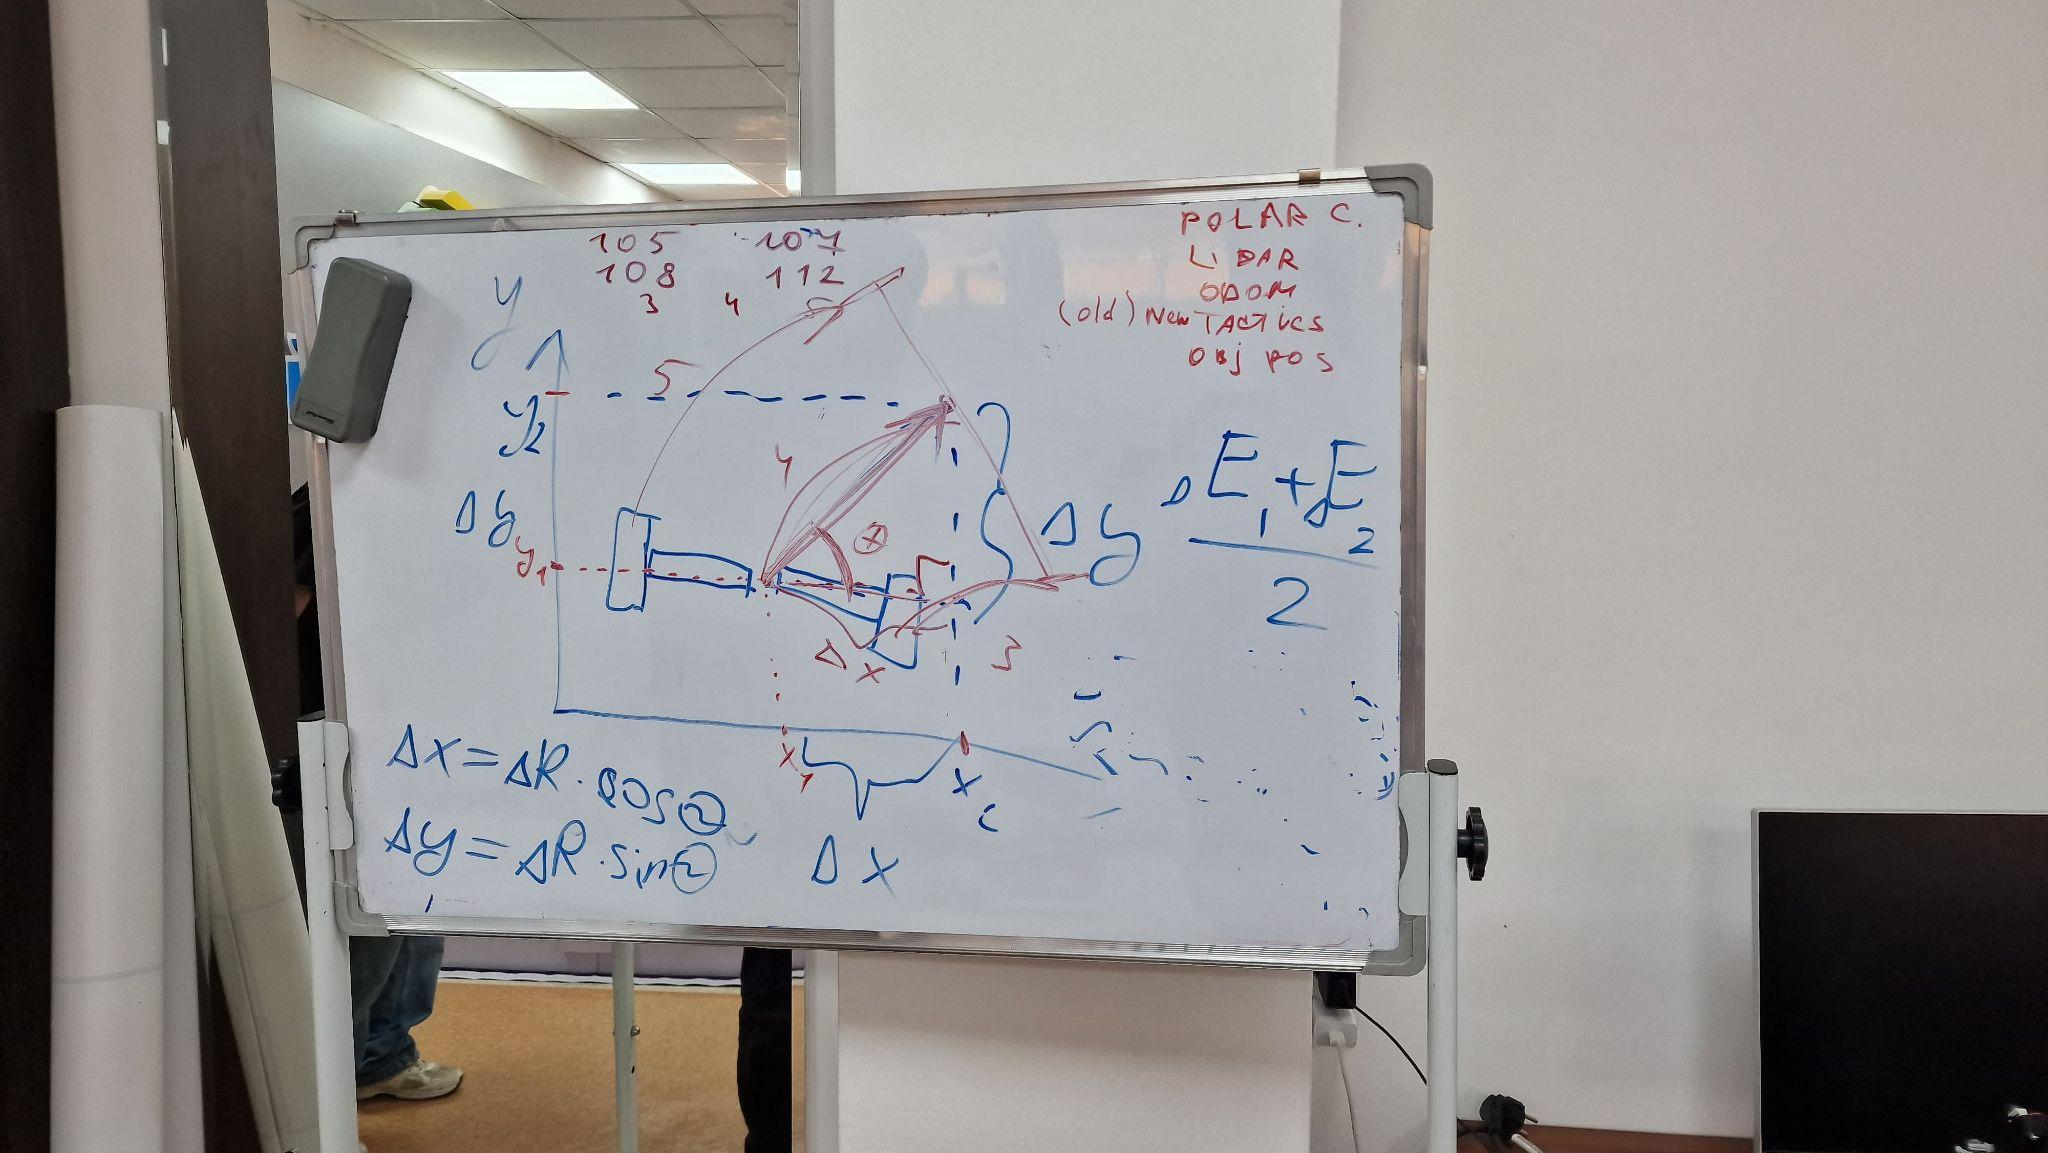 105 107
108 112
3 4
POLAR C.
LiDAR
ODOM
(old) New TACTICS
OBJ POS
y
5
y2
4
Δy
y1
Δy
ΔE1 + ΔE2
2
Δx
3
x1
x2
Δx = ΔR · cos
Δy = ΔR · sin
Δx